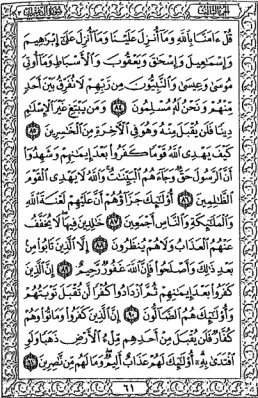 الجزء الثالث سورة آل عمران
قُلْ ءَامَنَّا بِاللَّهِ وَمَا أُنزِلَ عَلَيْنَا وَمَا أُنزِلَ عَلَىٰ إِبْرَاهِيمَ
وَإِسْمَاعِيلَ وَإِسْحَاقَ وَيَعْقُوبَ وَالْأَسْبَاطِ وَمَا أُوتِيَ
مُوسَىٰ وَعِيسَىٰ وَالنَّبِيُّونَ مِن رَّبِّهِمْ لَا نُفَرِّقُ بَيْنَ أَحَدٍ
مِّنْهُمْ وَنَحْنُ لَهُ مُسْلِمُونَ ٨٤ وَمَن يَبْتَغِ غَيْرَ الْإِسْلَامِ
دِينًا فَلَن يُقْبَلَ مِنْهُ وَهُوَ فِي الْآخِرَةِ مِنَ الْخَاسِرِينَ ٨٥
كَيْفَ يَهْدِي اللَّهُ قَوْمًا كَفَرُوا بَعْدَ إِيمَانِهِمْ وَشَهِدُوا
أَنَّ الرَّسُولَ حَقٌّ وَجَاءَهُمُ الْبَيِّنَاتُ وَاللَّهُ لَا يَهْدِي الْقَوْمَ
الظَّالِمِينَ ٨٦ أُولَٰئِكَ جَزَاؤُهُمْ أَنَّ عَلَيْهِمْ لَعْنَةَ اللَّهِ
وَالْمَلَائِكَةِ وَالنَّاسِ أَجْمَعِينَ ٨٧ خَالِدِينَ فِيهَا لَا يُخَفَّفُ
عَنْهُمُ الْعَذَابُ وَلَا هُمْ يُنظَرُونَ ٨٨ إِلَّا الَّذِينَ تَابُوا مِن
بَعْدِ ذَٰلِكَ وَأَصْلَحُوا فَإِنَّ اللَّهَ غَفُورٌ رَّحِيمٌ ٨٩ إِنَّ الَّذِينَ
كَفَرُوا بَعْدَ إِيمَانِهِمْ ثُمَّ ازْدَادُوا كُفْرًا لَّن تُقْبَلَ تَوْبَتُهُمْ
وَأُولَٰئِكَ هُمُ الضَّالُّونَ ٩٠ إِنَّ الَّذِينَ كَفَرُوا وَمَاتُوا وَهُمْ
كُفَّارٌ فَلَن يُقْبَلَ مِنْ أَحَدِهِم مِّلْءُ الْأَرْضِ ذَهَبًا وَلَوِ
افْتَدَىٰ بِهِ أُولَٰئِكَ لَهُمْ عَذَابٌ أَلِيمٌ وَمَا لَهُم مِّن نَّاصِرِينَ ٩١
٦١